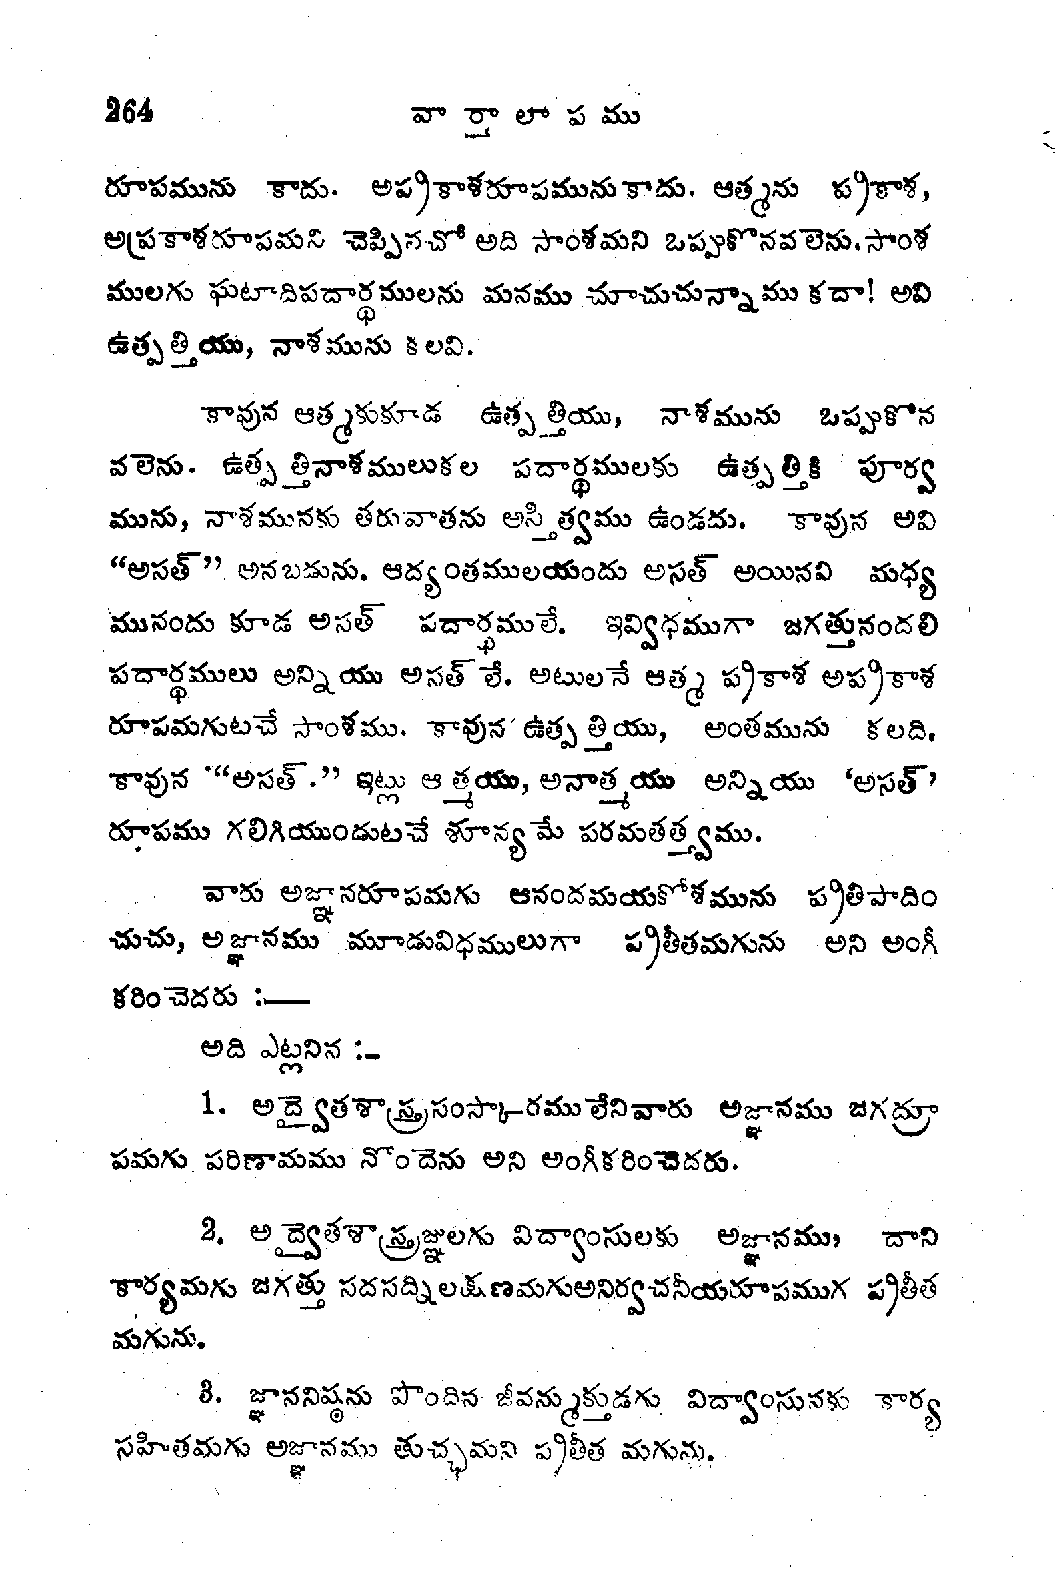 264 వార్తాలాపము
రూపమును కాదు. అప్రకాశరూపమును కాదు. ఆత్మను ప్రకాశ,
అప్రకాశరూపమని చెప్పినచో అది సాంశమని ఒప్పుకొనవలెను. సాంశ
ములగు ఘటాదిపదార్థములను మనము చూచుచున్నాము కదా! అవి
ఉత్పత్తియు, నాశమును కలవి.
కావున ఆత్మకుకూడ ఉత్పత్తియు, నాశమును ఒప్పుకొన
వలెను. ఉత్పత్తినాశములుకల పదార్థములకు ఉత్పత్తికి పూర్వ
మును, నాశమునకు తరువాతను అస్తిత్వము ఉండదు. కావున అవి
“అసత్” అనబడును. ఆద్యంతములయందు అసత్ అయినవి మధ్య
మునందు కూడ అసత్ పదార్థములే. ఇవ్విధముగా జగత్తునందలి
పదార్థములు అన్నియు అసత్ లే. అటులనే ఆత్మ ప్రకాశ అప్రకాశ
రూపమగుటచే సాంశము. కావున ఉత్పత్తియు, అంతమును కలది.
కావున “అసత్.” ఇట్లు ఆత్మయు, అనాత్మయు అన్నియు ‘అసత్’
రూపము గలిగియుండుటచే శూన్యమే పరమతత్త్వము.
వారు అజ్ఞానరూపమగు ఆనందమయకోశమును ప్రతిపాదిం
చుచు, అజ్ఞానము మూడువిధములుగా ప్రతీతమగును అని అంగీ
కరించెదరు :—
అది ఎట్లనిన :–
1. అద్వైతశాస్త్రసంస్కారములేనివారు అజ్ఞానము జగద్రూ
పమగు పరిణామము నొందెను అని అంగీకరించెదరు.
2. అద్వైతశాస్త్రజ్ఞులగు విద్వాంసులకు అజ్ఞానము, దాని
కార్యమగు జగత్తు సదసద్విలక్షణమగుఅనిర్వచనీయరూపముగ ప్రతీత
మగును.
3. జ్ఞాననిష్ఠను పొందిన జీవన్ముక్తుడగు విద్వాంసునకు కార్య
సహితమగు అజ్ఞానము తుచ్ఛమని ప్రతీత మగును.